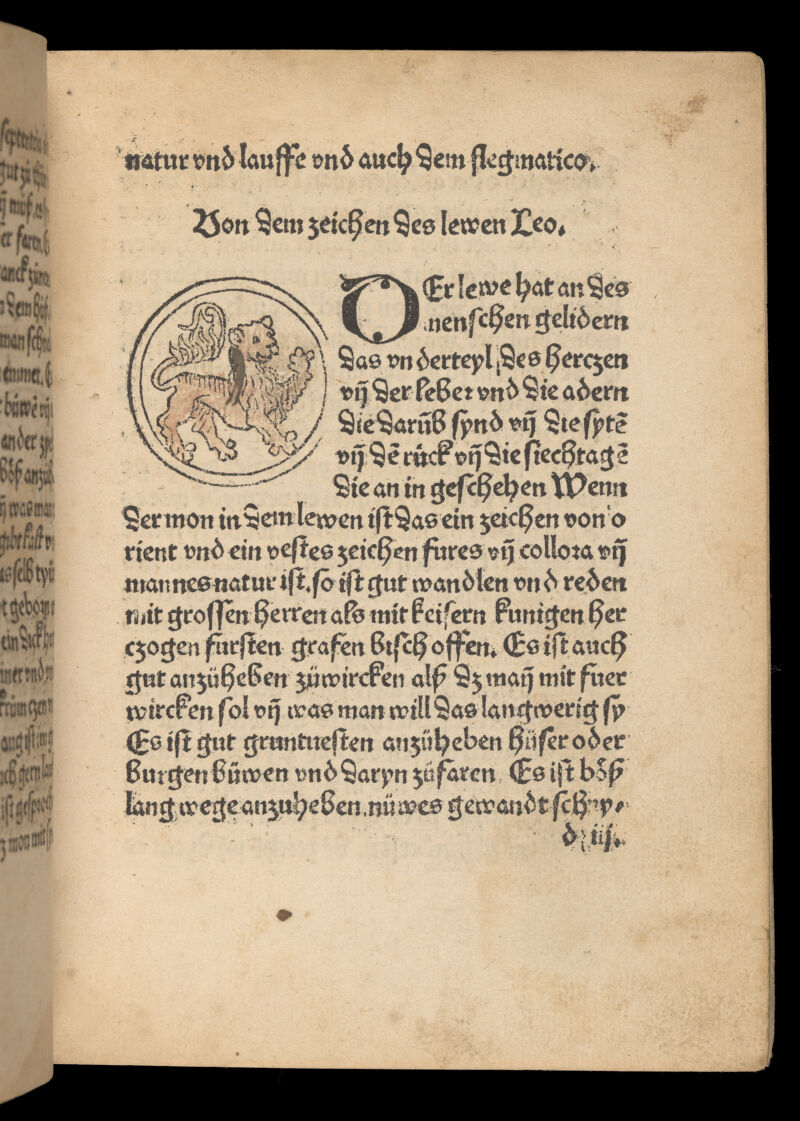 natur vnd lauffe vnd auch dem flegmatico.
Von dem zeichen des lewen Leo.
DEr lewe hat an des
menschen gelidern
das vnderteyl des herczen
vñ der leber vnd die adern
die darüb synd vñ die sytē
vñ dē rück vñ die siechtagē
die an in geschehen Wenn
der mon in dem lewen ist das ein zeichen von o
rient vnd ein vestes zeichen fures vñ collora vñ
mannes natur ist. so ist gut wandlen vnd reden
mit grossen herren als mit keisern kunigen her
czogen fursten grafen bischoffen. Es ist auch
gut anzüheben züwircken alß dz mañ mit fuer
wircken sol vñ was man will das langwerig sy
Es ist gut gruntuesten anzüheben hüser oder
burgen büwen vnd daryn züfaren. Es ist böß
lang wege anzuheben. nüwes gewandt schny-
d iij.